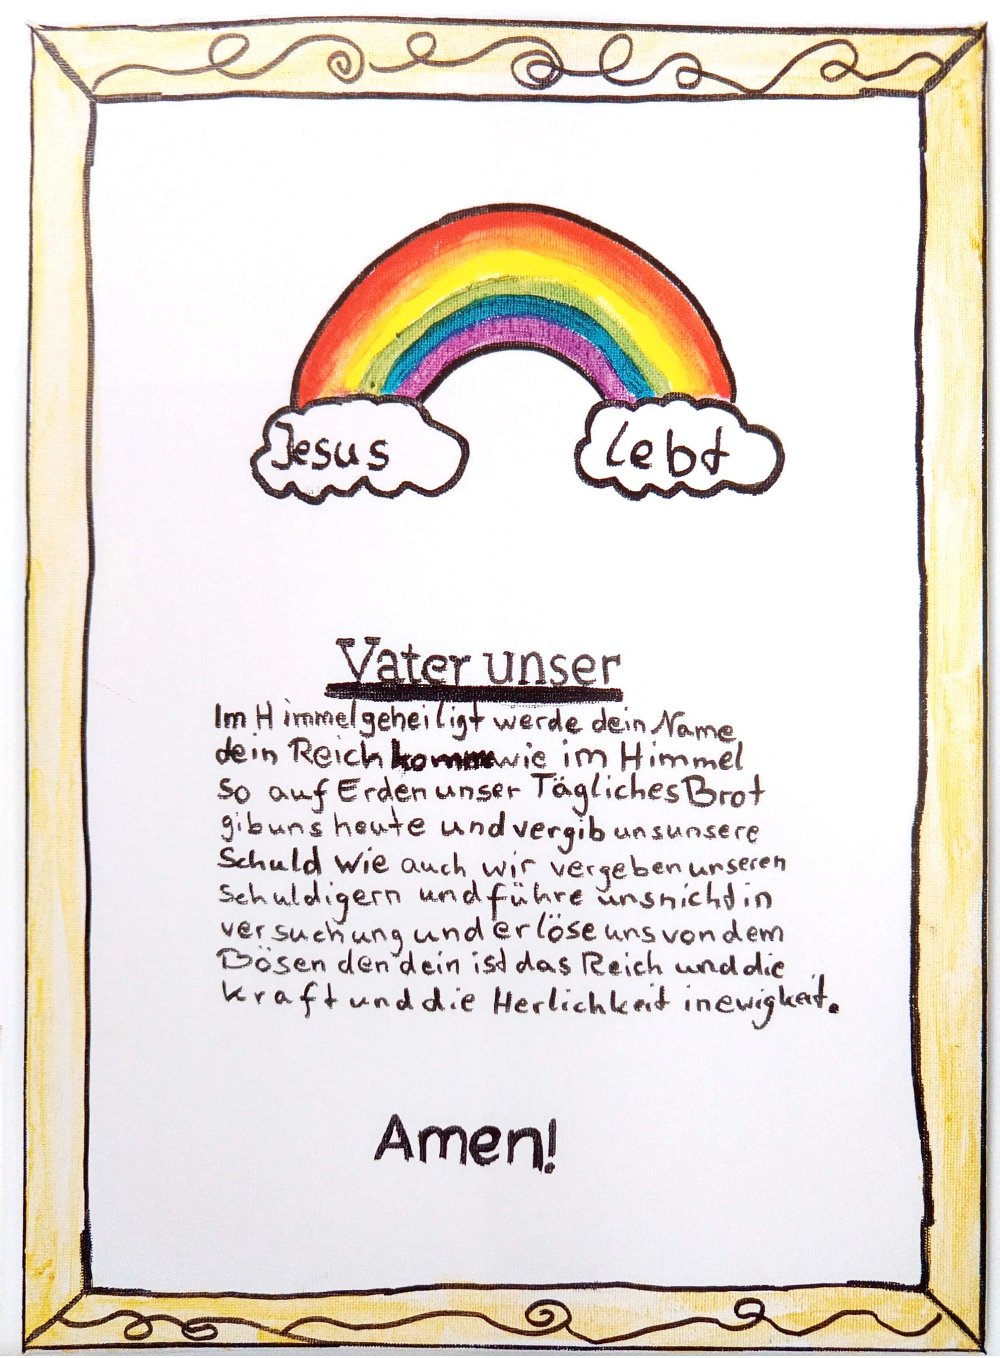 Jesus lebt
Vater unser
Im Himmel geheiligt werde dein Name
dein Reich komm wie im Himmel
So auf Erden unser Tägliches Brot
gib uns heute und vergib uns unsere
Schuld wie auch wir vergeben unseren
Schuldigern und führe uns nicht in
versuchung und erlöse uns von dem
Bösen den dein ist das Reich und die
Kraft und die Herlichkeit in ewigkeit.
Amen!